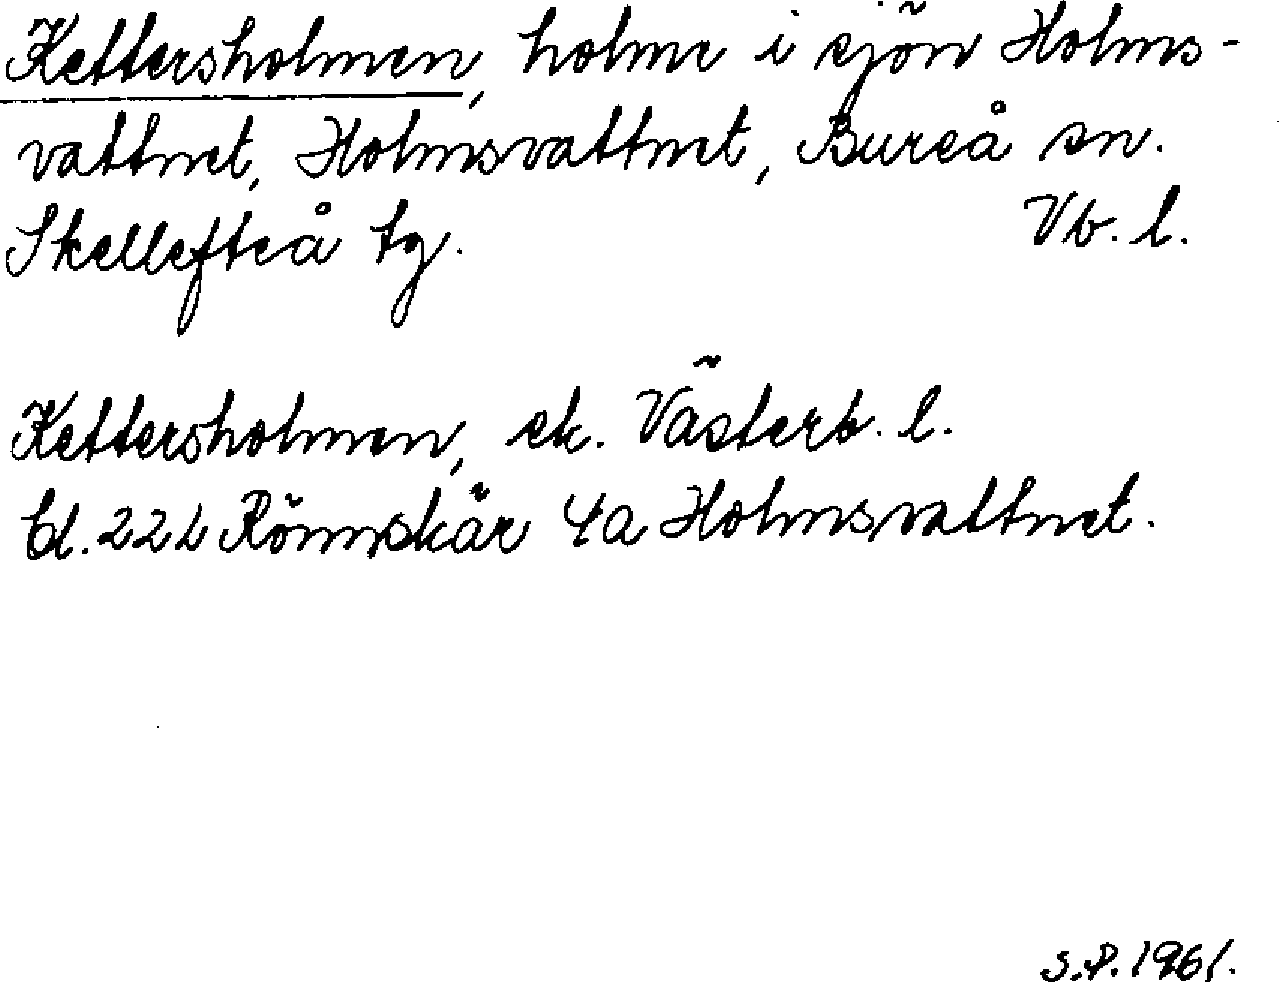 Kettersholmen, holme i sjön Holms-
vattnet, Holmsvattnet, Bureå sn.
Skellefteå tg. Vb. l.
Kettersholmen, ek. Västerb. l.
bl. 22L Rönnskär 4a Holmsvattnet.
S.P. 1961.